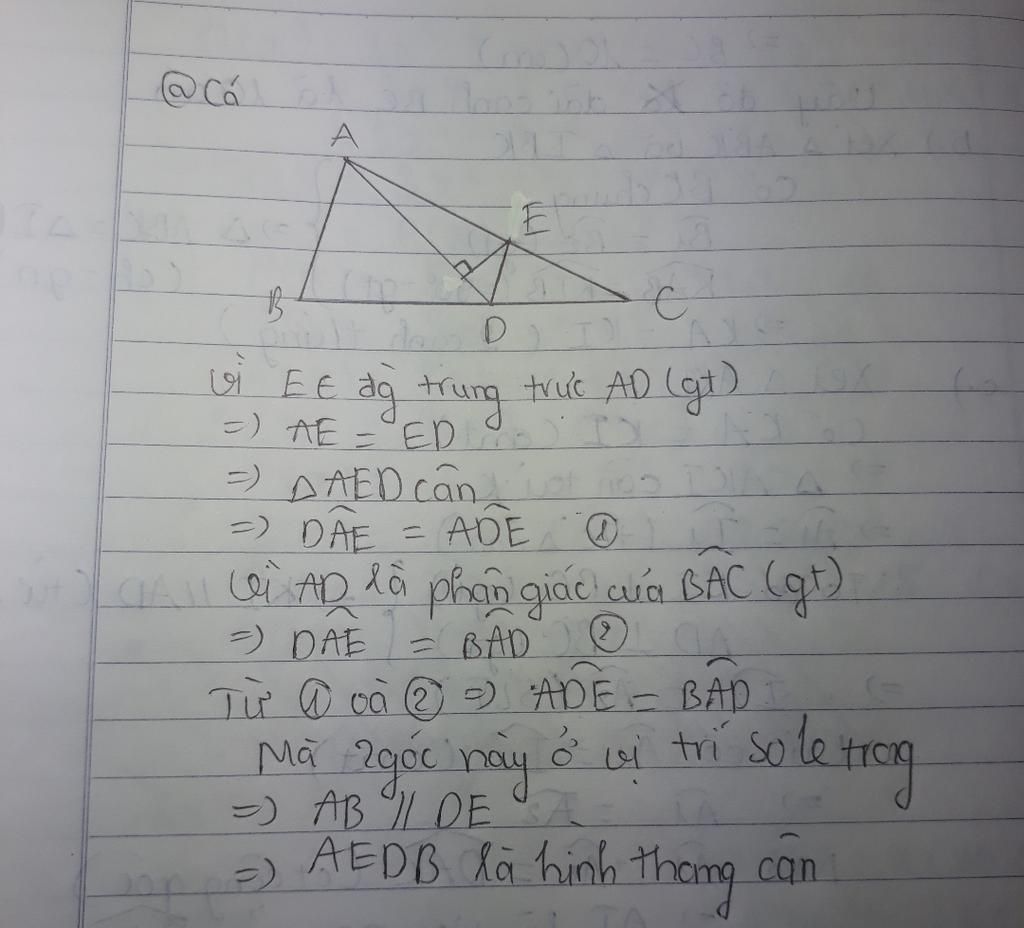 @ Có
A
E
B
D
C
Vì E ∈ đg trung trực AD (gt)
=) AE = ED
=) △AED cân
=) DÂE = AD̂E ①
Vì AD là phân giác cuả BÂC (gt)
=) DÂE = BÂD ②
Từ ① và ② =) AD̂E = BÂD
Mà 2 góc này ở vị trí so le trong
=) AB // DE
=) AEDB là hình thang cân